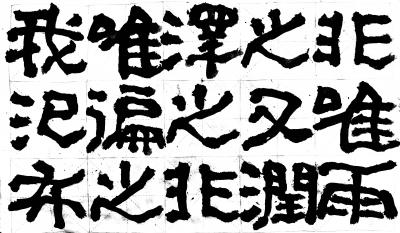 非唯雨
之又潤
澤之非
唯徧之
我氾布